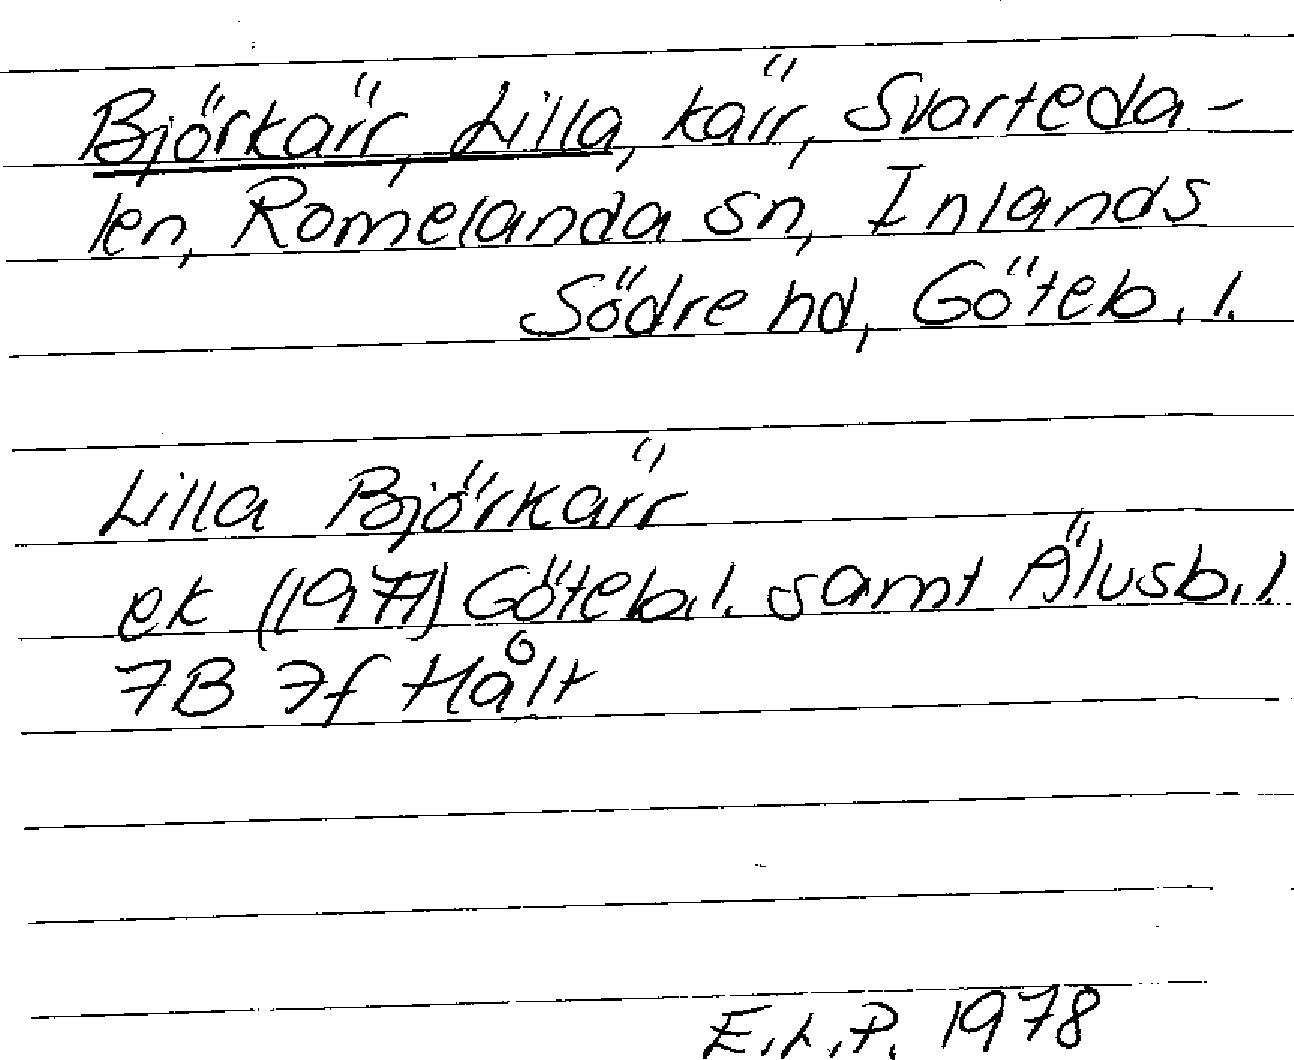 Björkärr, Lilla, kärr, Svarteda-
len, Romelanda sn, Inlands
Södre hd, Göteb. l.
Lilla Björkärr
ek (1977) Göteb. l. samt Älvsb. l.
7B 7f Hålt
E.L.P. 1978